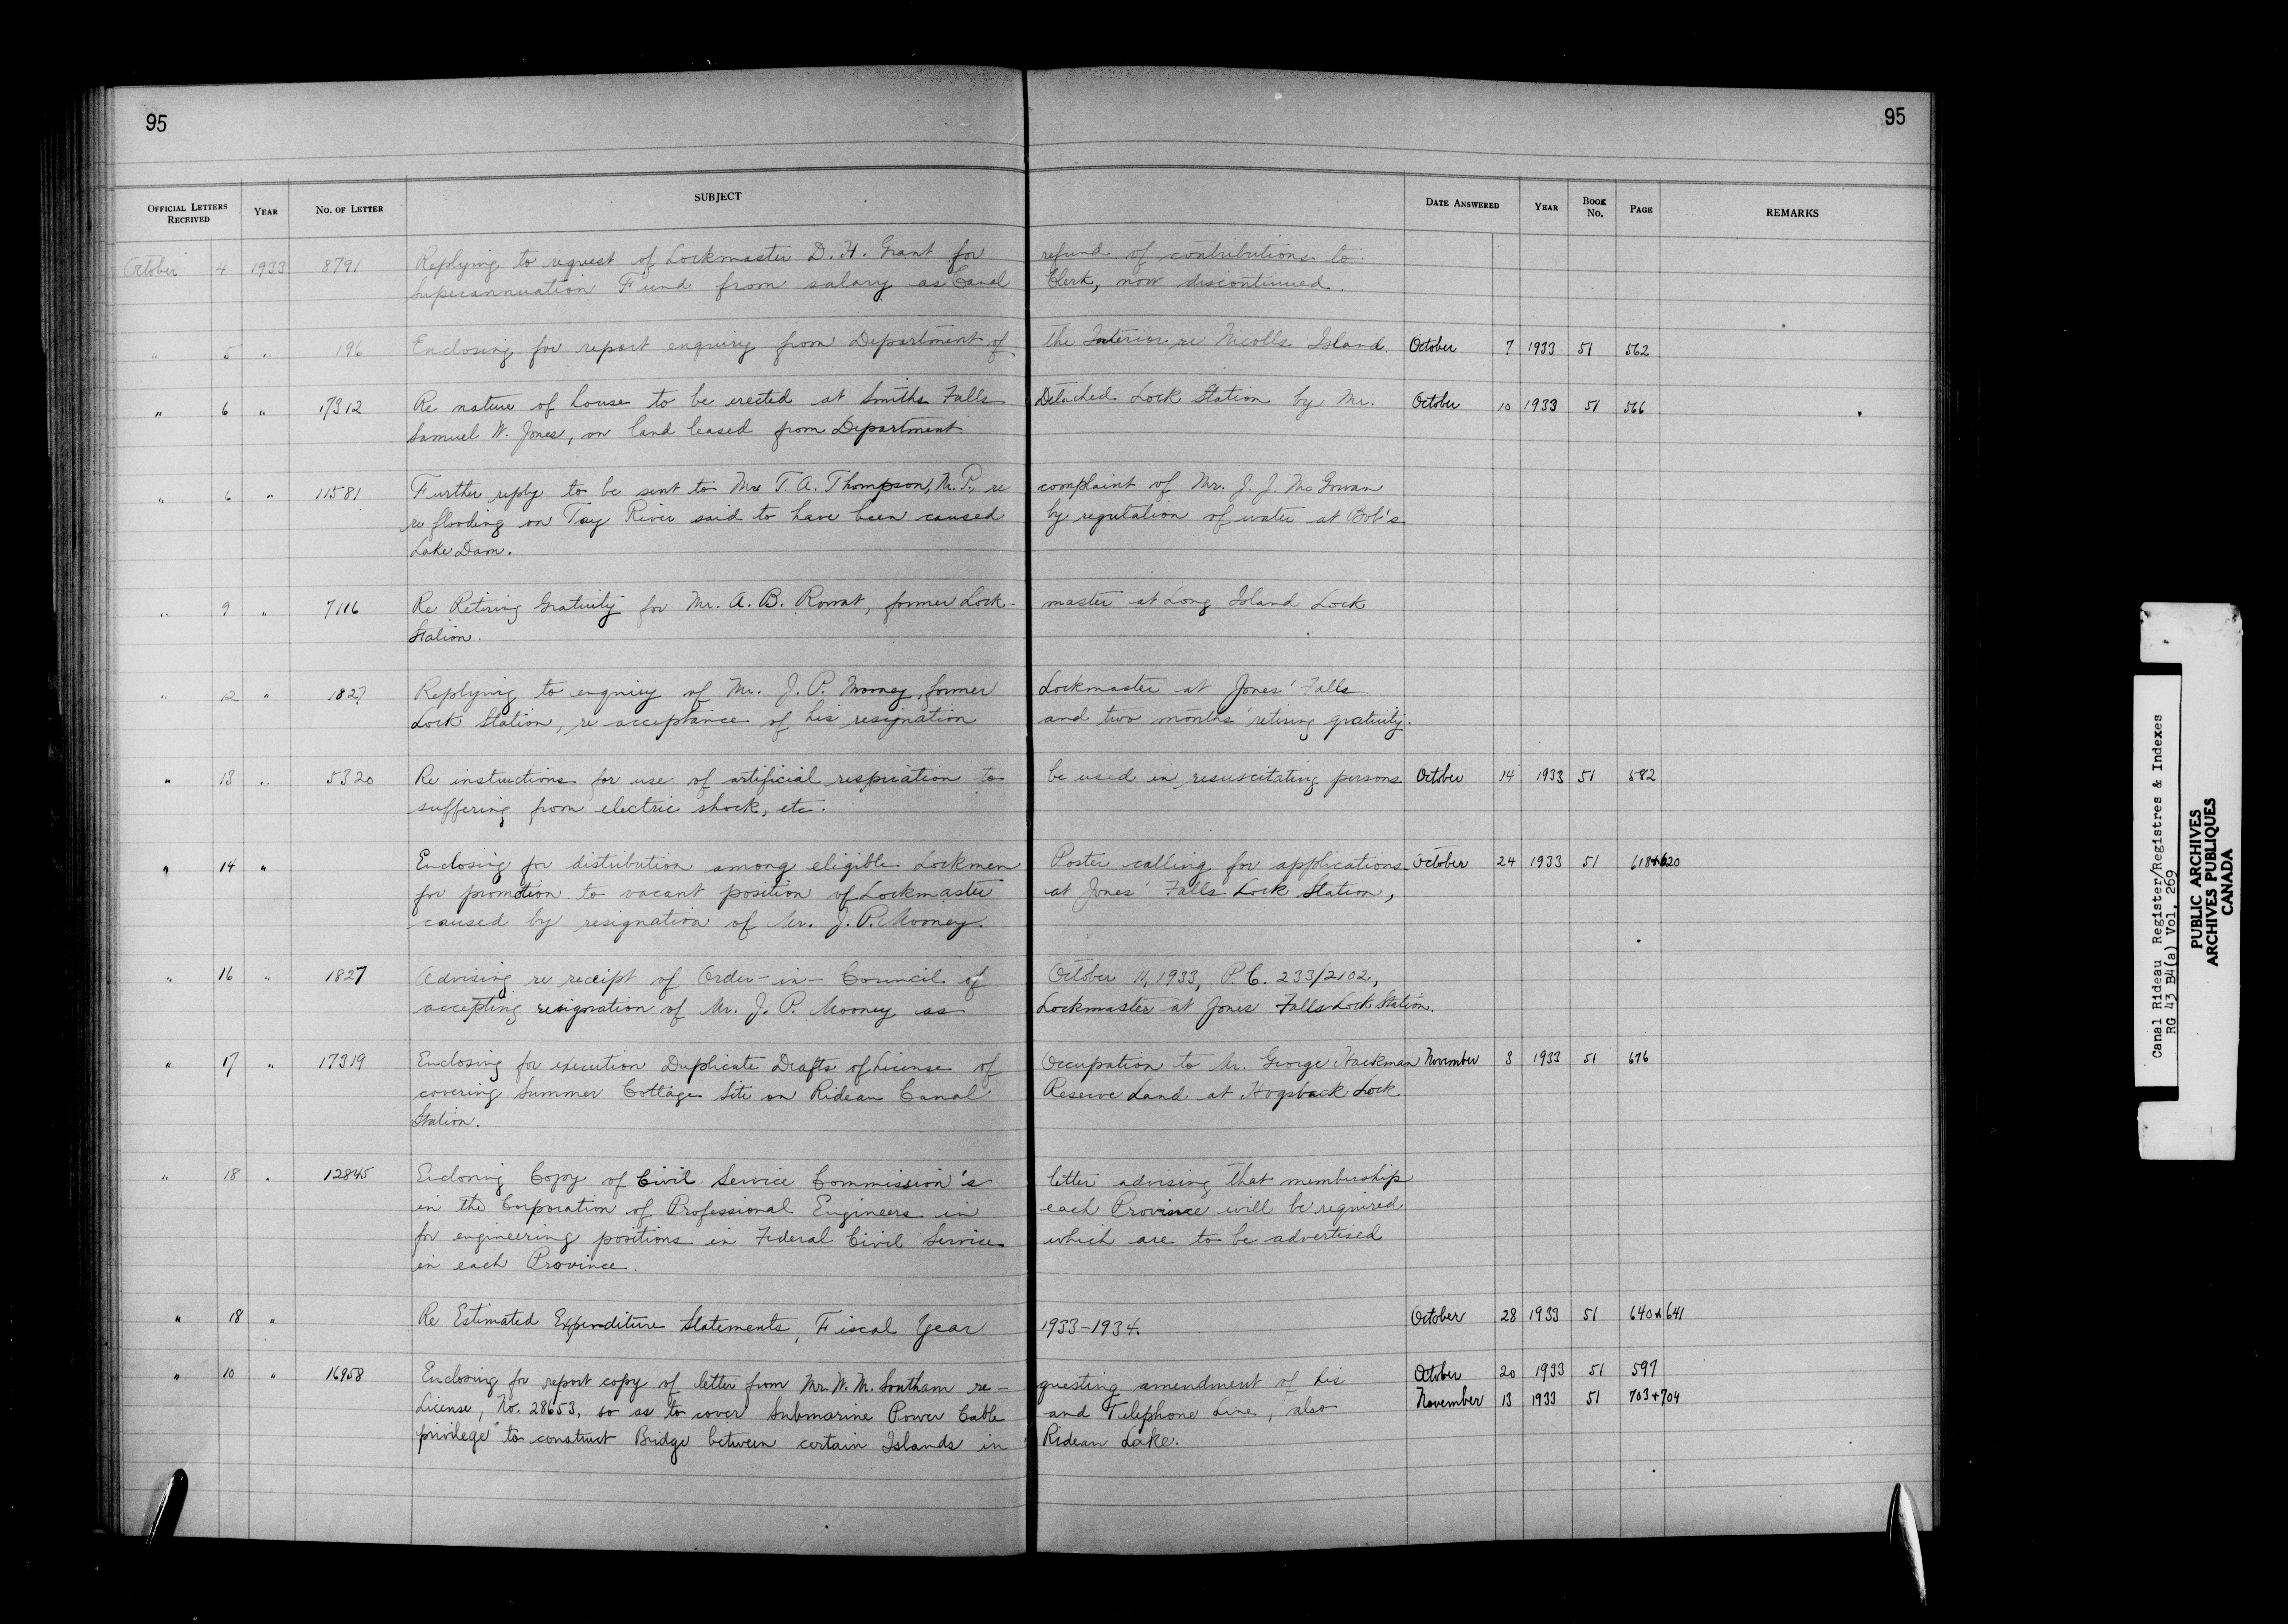 95
95
OFFICIAL LETTERS RECEIVED YEAR No. OF LETTER SUBJECT DATE ANSWERED YEAR BOOK No. PAGE REMARKS
October 4 1933 8791 Replying to request of Lockmaster D. H. Grant for refund of contributions to
Superannuation Fund from salary as Canal Clerk, now discontinued.
" 5 " 196 Enclosing for report enquiry from Department of the Interior re Nicolls Island. October 7 1933 51 562
" 6 " 17312 Re nature of house to be erected at Smiths Falls Detached Lock Station by Mr. October 10 1933 51 566
Samuel W. Jones, on land leased from Department.
" 6 " 11581 Further reply to be sent to Mr. T. A. Thompson, M.P., re complaint of Mr. J. J. McGowan
re flooding on Tay River said to have been caused by regulation of water at Bob's
Lake Dam.
" 9 " 7116 Re Retiring Gratuity for Mr. A. B. Rowat, former Lock- master at Long Island Lock
Station.
" 12 " 1827 Replying to enquiry of Mr. J. P. Mooney, former Lockmaster at Jones' Falls
Lock Station, re acceptance of his resignation and two months' retiring gratuity.
" 13 " 5320 Re instructions for use of artificial respiration to be used in resuscitating persons October 14 1933 51 582
suffering from electric shock, etc.
" 14 " Enclosing for distribution among eligible Lockmen Poster calling for applications October 24 1933 51 618+620
for promotion to vacant position of Lockmaster at Jones' Falls Lock Station,
caused by resignation of Mr. J. P. Mooney.
" 16 " 1827 Advising re receipt of Order-in-Council of October 11, 1933, P.C. 233/2102,
accepting resignation of Mr. J. P. Mooney as Lockmaster at Jones Falls Lock Station.
" 17 " 17319 Enclosing for execution Duplicate Drafts of License of Occupation to Mr. George Hackman November 3 1933 51 676
covering Summer Cottage Site on Rideau Canal Reserve Land at Hogsback Lock
Station.
" 18 " 12845 Enclosing Copy of Civil Service Commission's letter advising that membership
in the Corporation of Professional Engineers in each Province will be required
for engineering positions in Federal Civil Service which are to be advertised
in each Province.
" 18 " Re Estimated Expenditure Statements, Fiscal Year 1933-1934. October 28 1933 51 640+641
" 10 " 16958 Enclosing for report copy of letter from Mr. W. M. Southam re- questing amendment of his October 20 1933 51 597
License, No. 28653, so as to cover Submarine Power Cable and Telephone Line, also November 13 1933 51 703+704
privilege to construct Bridge between certain Islands in Rideau Lake.
Canal Rideau Register/Registres & Indexes
RG 43 B4(a) Vol. 269
PUBLIC ARCHIVES
ARCHIVES PUBLIQUES
CANADA